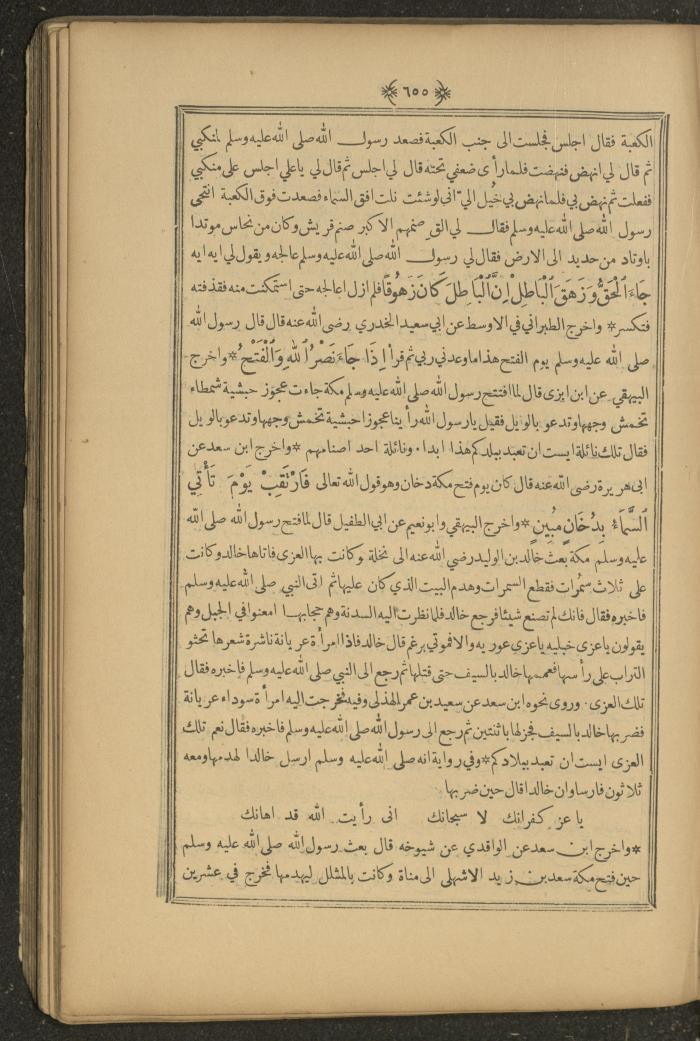 ٦٥٥
الكعبة فقال اجلس فجلست الى جنب الكعبة فصعد رسول الله صلى الله عليه وسلم لمنكبي
ثم قال لي انهض فنهضت فلما رأى ضعفي تحته قال لي اجلس ثم قال لي يا علي اجلس على منكبي
ففعلت ثم نهض بي فلما نهض بي خيل اليّ اني لو شئت نلت افق السماء فصعدت فوق الكعبة انتحى
رسول الله صلى الله عليه وسلم فقال لي الق صنمهم الاكبر صنم قريش وكان من نحاس موتدا
باوتاد من حديد الى الارض فقال لي رسول الله صلى الله عليه وسلم عالجه ويقول لي ايه ايه
جَاءَ الْحَقُّ وَزَهَقَ الْبَاطِلُ اِنَّ الْبَاطِلَ كَانَ زَهُوقًا فلم ازل اعالجه حتى استمكنت منه فقذفته
فتكسر* واخرج الطبراني في الاوسط عن ابي سعيد الخدري رضى الله عنه قال قال رسول الله
صلى الله عليه وسلم يوم الفتح هذا ما وعدني ربي ثم قرأ اِذَا جَاءَ نَصْرُ اللهِ وَالْفَتْحُ* واخرج
البيهقي عن ابن ابزى قال لما افتتح رسول الله صلى الله عليه وسلم مكة جاءت عجوز حبشية شمطاء
تخمش وجهها وتدعو بالويل فقيل يارسول الله رأينا عجوزا حبشية تخمش وجهها وتدعو بالويل
فقال تلك نائلة ايست ان تعبد ببلدكم هذا ابدا. ونائلة احد اصنامهم *واخرج ابن سعد عن
ابى هريرة رضى الله عنه قال كان يوم فتح مكة دخان وهو قول الله تعالى فَارْتَقِبْ يَوْمَ تَأْتِي
السَّمَاءُ بِدُخَانٍ مُبِينٍ* واخرج البيهقي وابو نعيم عن ابي الطفيل قال لما فتح رسول الله صلى الله
عليه وسلم مكة بعث خالد بن الوليد رضى الله عنه الى نخلة وكانت بها العزى فاتاها خالد وكانت
على ثلاث سمُرات فقطع السمرات وهدم البيت الذي كان عليها ثم اتى النبي صلى الله عليه وسلم
فاخبره فقال فانك لم تصنع شيئا فرجع خالد فلما نظرت اليه السدنة وهم حجابها امعنوا في الجبل وهم
يقولون ياعزى خبليه ياعزي عوريه والا فموتي برغم قال خالد فاذا امرأة عريانة ناشرة شعرها تحثو
التراب على رأسها فعممها خالد بالسيف حتى قتلها ثم رجع الى النبي صلى الله عليه وسلم فاخبره فقال
تلك العزى. وروى نحوه ابن سعد عن سعيد بن عمر الهذلى وفيه فخرجت اليه امرأة سوداء عريانة
فضربها خالد بالسيف فجزلها باثنتين ثم رجع الى رسول الله صلى الله عليه وسلم فاخبره فقال نعم تلك
العزى ايست ان تعبد ببلادكم* وفي رواية انه صلى الله عليه وسلم ارسل خالدا لهدمها ومعه
ثلاثون فارسا وان خالدا قال حين ضربها
ياعز كفرانك لا سبحانك انى رأيت الله قد اهانك
*واخرج ابن سعد عن الواقدي عن شيوخه قال بعث رسول الله صلى الله عليه وسلم
حين فتح مكة سعد بن زيد الاشهلى الى مناة وكانت بالمثلل ليهدمها فخرج في عشرين